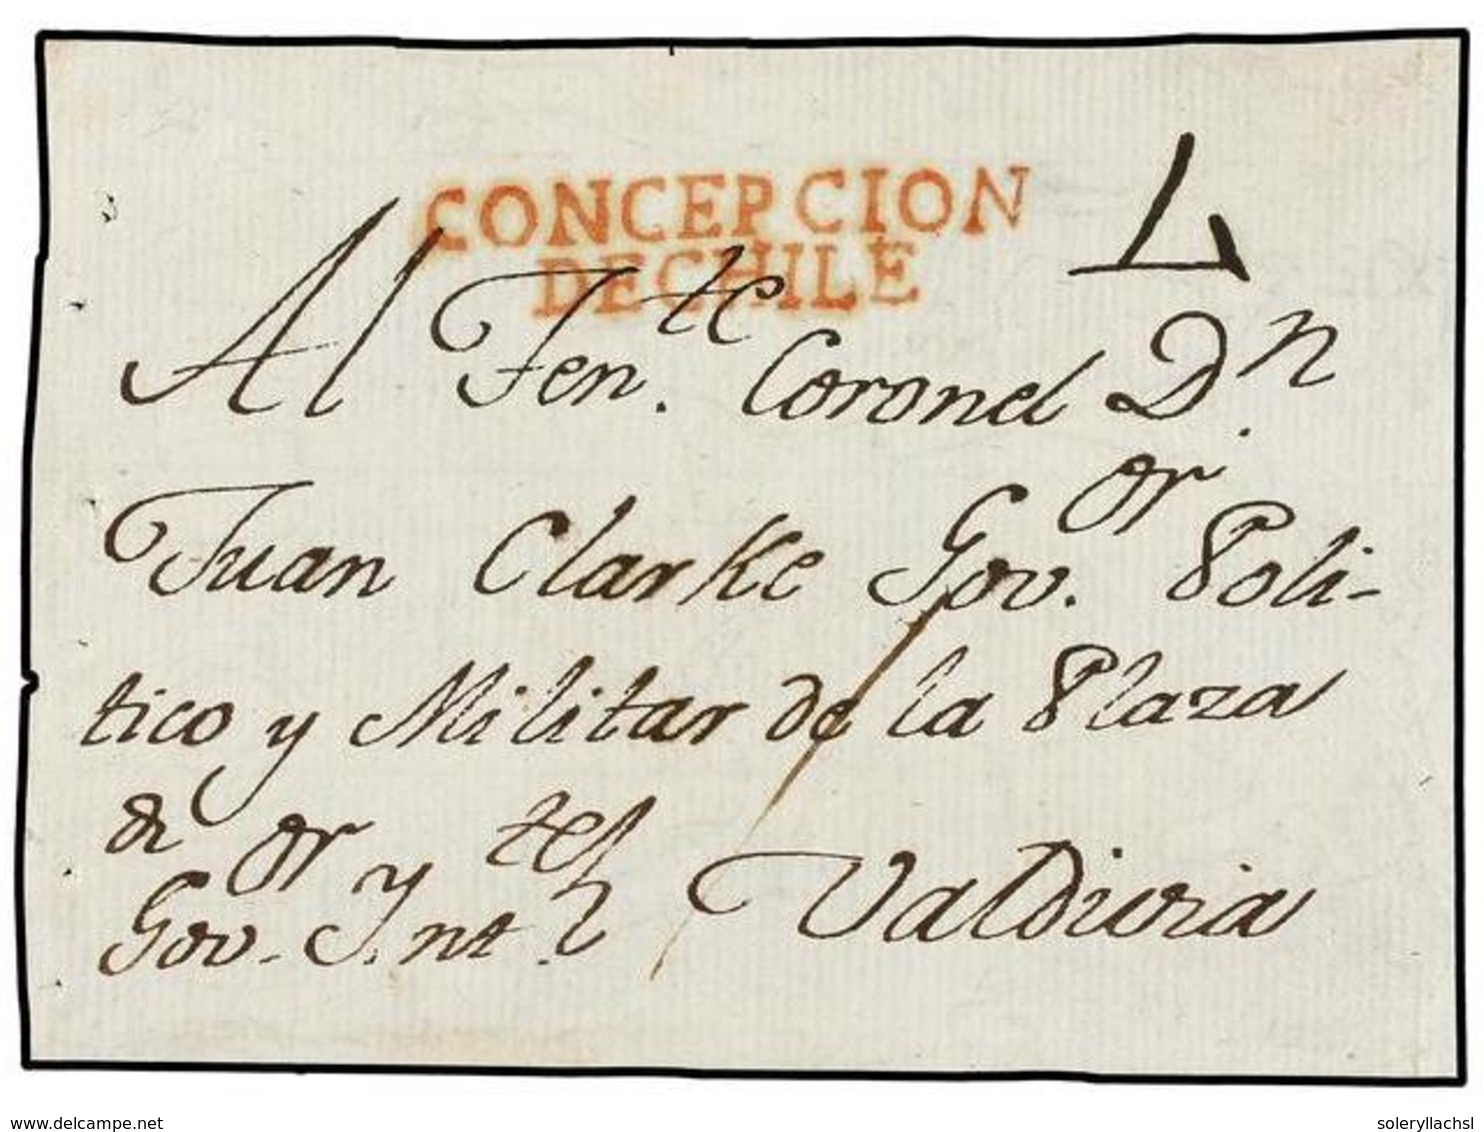 CONCEPCION
DE CHILE
Al Ten.te Coronel D.n
Juan Clarke Gov.or Poli-
tico y Militar de la Plaza
de
Gov.or Ynt. Valdivia
www.delcampe.net
soleryllachsl